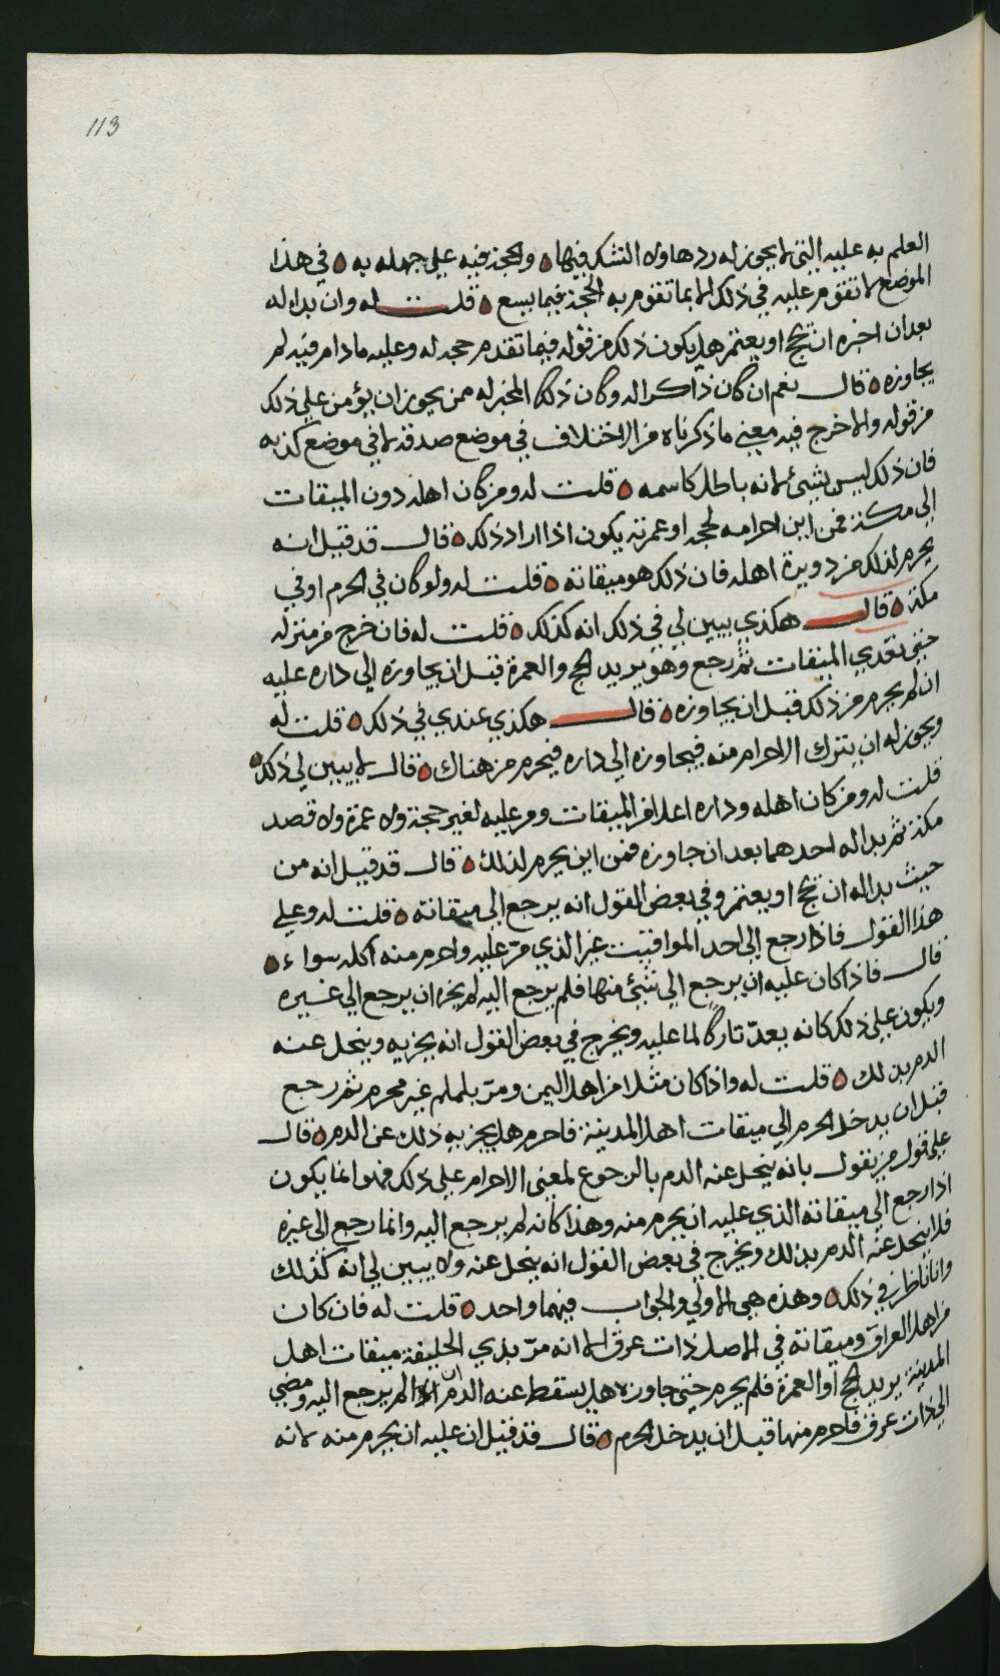 113
العلم به عليه التي لا يجوز له ردها ولا الشك فيها ٥ والحجة فيه على جهله به ٥ في هذا
الموضع لا تقوم عليه في ذلك الا بما تقوم به الحجة فيما يسع ٥ قلت له وان بدا له
بعد ان اخبره ان يحج او يعتمر هل يكون ذلك من قوله فيما تقدم حجة له وعليه ما دام فيه لم
يجاوزه ٥ قال نعم ان كان ذاكرا له وكان ذلك المخبر له ممن يجوز ان يؤمن على ذلك
من قوله والا خرج فيه معنى ما ذكرناه من الاختلاف في موضع صدقه لا في موضع كذبه
فان ذلك ليس بشئ لانه باطل كاسمه ٥ قلت له ومن كان اهله دون الميقات
الى مكة فمن اين احرامه لحجه او عمرته يكون اذا اراد ذلك ٥ قال قد قيل انه
يحرم لذلك من دويرة اهله فان ذلك هو ميقاته ٥ قلت له ولو كان في الحرم او في
مكة ٥ قال هكذي يبين لي في ذلك انه كذلك ٥ قلت له فان خرج من منزله
حتى تعدي الميقات ثم رجع وهو يريد الحج والعمرة قبل ان يجاوزه الى داره عليه
ان لم يحرم من ذلك قبل ان يجاوزه ٥ قال هكذي عندي في ذلك ٥ قلت له
ويجوز له ان يترك الاحرام منه فيجاوزه الى داره فيحرم من هناك ٥ قال لا يبين لي ذلك ٥
قلت له ومن كان اهله وداره اعلا من الميقات ومر عليه لغير حجة ولا عمرة ولا قصد
مكة ثم بدا له احدهما بعد ان جاوزه فمن اين يحرم لذلك ٥ قال قد قيل انه من
حيث بدا له ان يحج او يعتمر وفي بعض القول انه يرجع الى ميقاته ٥ قلت له وعلى
هذا القول فاذا رجع الى احد المواقيت غير الذي مر عليه واحرم منه اكله سواء ٥
قال فاذا كان عليه ان يرجع الى شئ منها فلم يرجع اليه لم يجزه ان يرجع الى غيره
ويكون على ذلك كانه يعدّ تاركا لما عليه ويخرج في بعض القول انه يجزيه وينحل عنه
الدم بذلك ٥ قلت له واذا كان مثلا من اهل اليمن ومرّ بلملم غير محرم ثم رجع
قبل ان يدخل الحرم الى ميقات اهل المدينة فاحرم هل يجزيه ذلك عن الدم ٥ قال
على قول من يقول بانه ينحل عنه الدم بالرجوع لمعنى الاحرام على ذلك فهو انما يكون
اذا رجع الى ميقاته الذي عليه ان يحرم منه وهذا كانه لم يرجع اليه وانما رجع الى غيره
فلا ينحل عنه الدم بذلك ويخرج في بعض القول انه ينحل عنه ولا يبين لي انه كذلك
وانا ناظر في ذلك ٥ وهذه هي الاولى والجواب فيهما واحد ٥ قلت له فان كان
من اهل العراق وميقاته في الاصل ذات عرق الا انه مرّ بذي الحليفة ميقات اهل
المدينة يريد الحج او العمرة فلم يحرم حتى جاوزه هل يسقط عنه الدم ان لم يرجع اليه ومضى
الى ذات عرق فاحرم منها قبل ان يدخل الحرم ٥ قال قد قيل ان عليه ان يحرم منه لانه